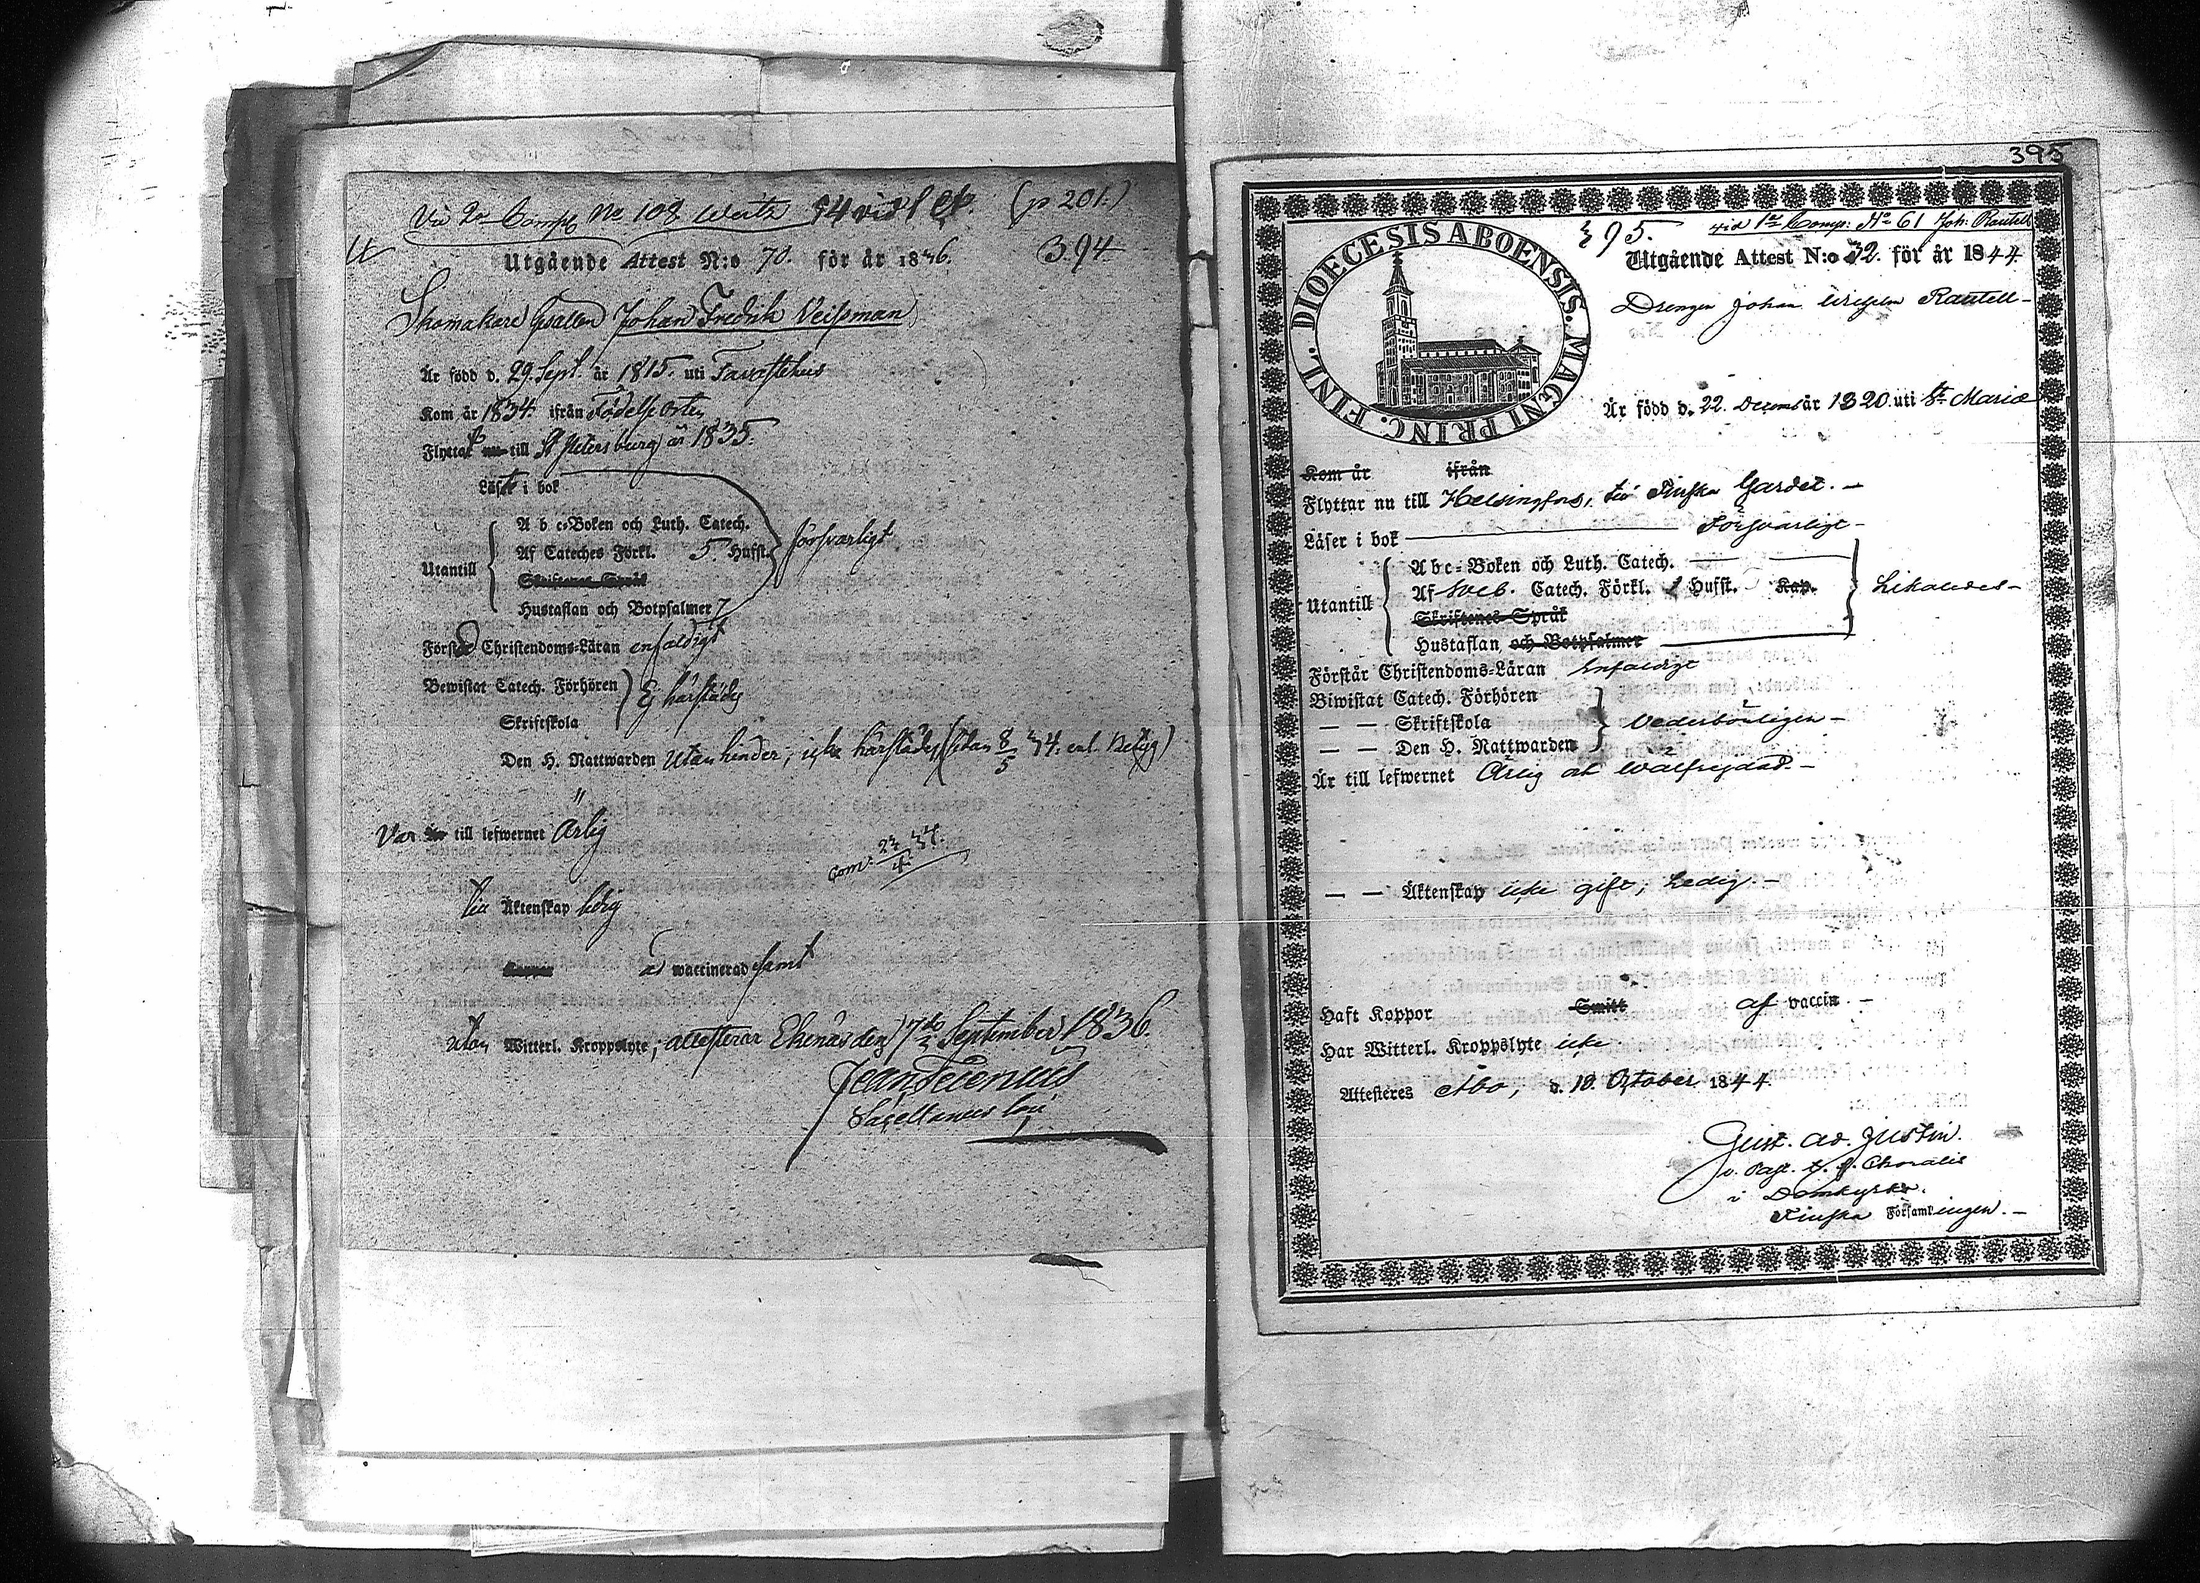 Vid 2a Comp. No 108 (p 201.)
Utgående Attest N:o 70. för år 1836. 394
Skomakare Gsällen Johan Fredrik Veissman
Är född d. 29. Sept. år 1815. uti Tavastehus
Kom år 1834 ifrån Födelseorten
Flyttat till St Petersburg år 1835.
Läste i bok
A b c-Boken och Luth. Catech.
Utantill Af Cateches Förkl. 5 Hufst. försvarligt
Skriftenes Språk
Hustaflan och Botpsalmer 7
Förstod Christendoms-Läran enfaldigt
Bewistat Catech. Förhören Ej härstädes
Skriftskola
Den H. Nattwarden utan hinder, icke härstädes (sedan 8/5 34. enl. Betyg)
Var till lefwernet Ärlig
Com: 23/4 37.
till Äktenskap ledig
Koppor är waccinerad samt
utan Witterl. Kroppslyte, attesterar Ekenäs den 7de September 1836.
Sacellanus loci
395
395. vid 1a Comp. No 61 Joh. Rautell
DIOECESIS ABOENSIS. MAGNI PRINC. FINL.
Utgående Attest N:o 32. för år 1844
Drengen Johan Wilhelm Rautell
Är född d. 22. Decemb år 1820. uti St Mariæ
Kom år ifrån
Flyttar nu till Helsingfors, till Finska Gardet. —
Läser i bok — Försvarligt —
A b c-Boken och Luth. Catech.
Utantill Af Sveb. Catech. Förkl. Hufst. Kap. Likaledes —
Skriftenes Språk
Hustaflan och Botpsalmer
Förstår Christendoms-Läran Enfaldigt
Biwistat Catech. Förhören
— — Skriftskola Vederbörligen —
— — Den H. Nattwarden
Är till lefwernet Ärlig och Wälfrejdad. —
— — Äktenskap icke gift; Ledig. —
Haft Koppor Smitt af vaccin. —
Har Witterl. Kroppslyte icke
Attesteres Åbo, d. 10. October 1844.
Gust. Ad. Justin.
v. Past. Choralis
i Domkyrko
Finska Församlingen. —